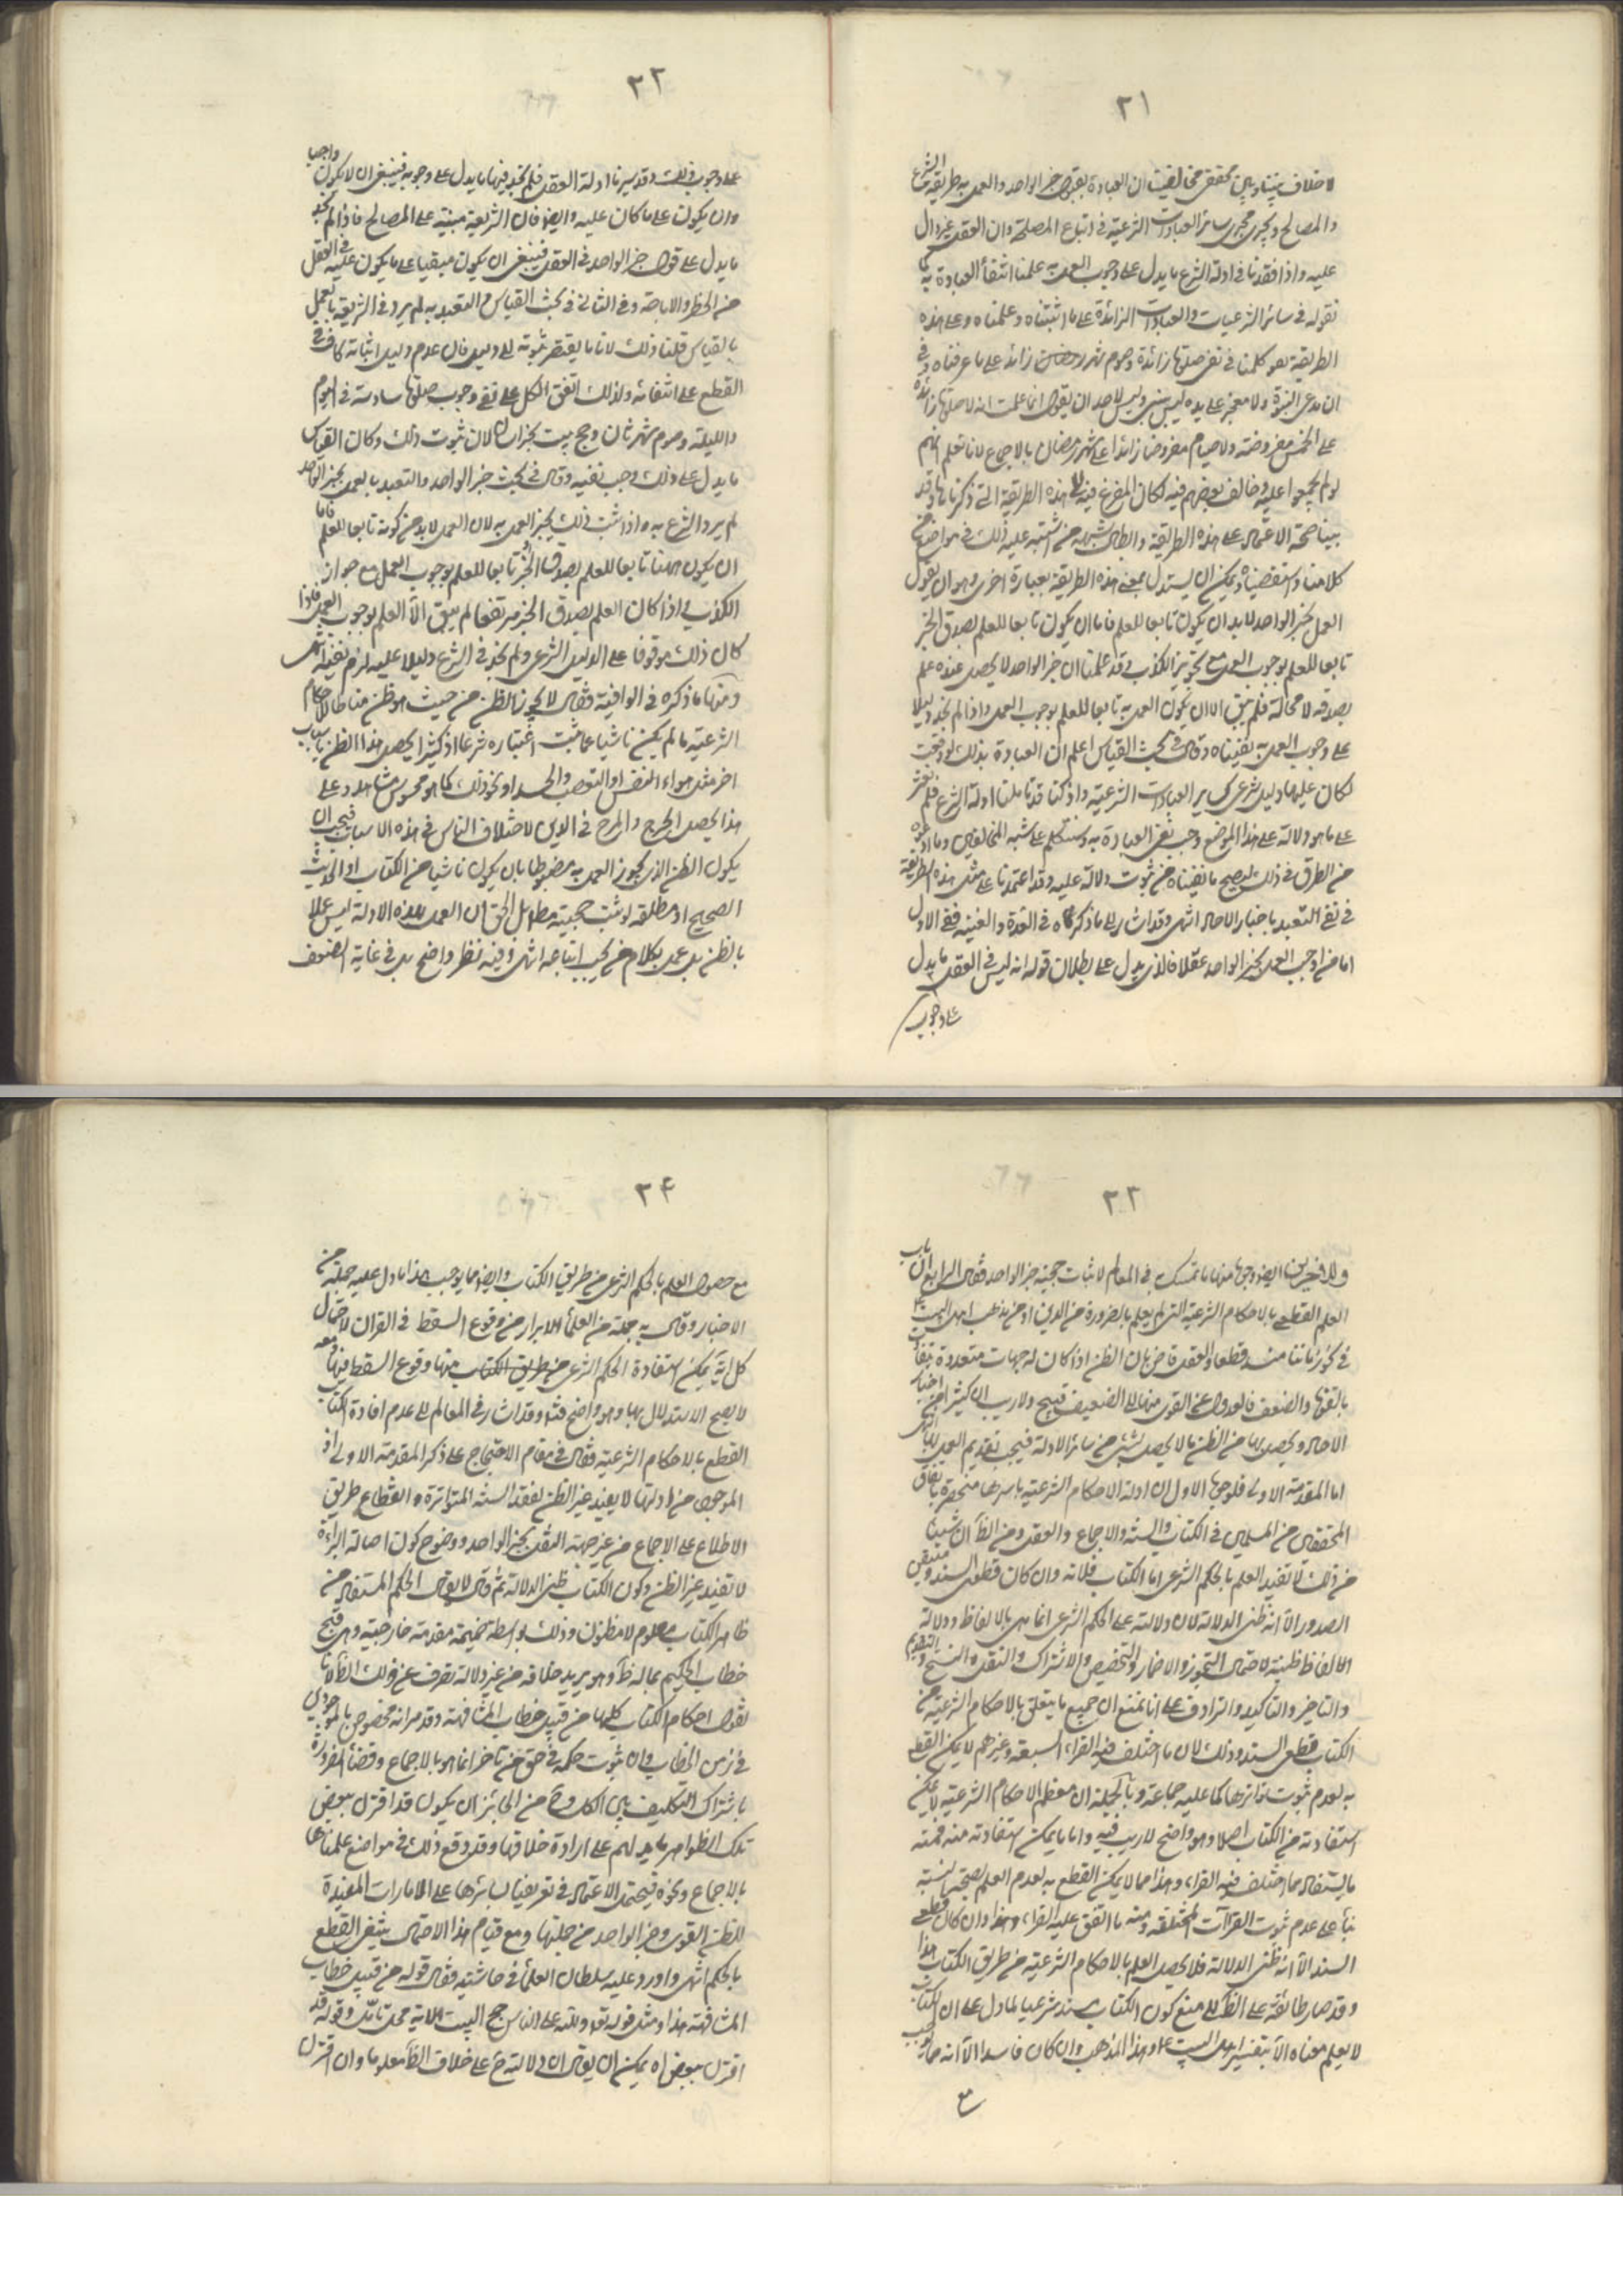 ٢١
لا خلاف بيننا وبين محققي مخالفينا ان العبادة بقبول خبر الواحد والعمل به طريقه الشرع
والمصالح ويجري مجرى سائر العبادات الشرعية في اتباع المصلحة وان العقل غير دال
عليه واذا فقدنا في ادلة الشرع ما يدل على وجوب العمل به علمنا انتفاء العبادة به كما
نقوله في سائر الشرعيات والعبادات الزائدة على ما اثبتناه وعلمناه وعلى هذه
الطريقة نعول كلنا في نفي صلوة زائدة وصوم شهر رمضان زائد على ما عرفناه وفي
ان مدعي النبوة ولا معجز على يده ليس بنبي وليس لاحد ان يقول انما علمت انه لا صلوة زائدة
على الخمس مفروضة ولا صيام مفروضا زائدا على شهر رمضان بالاجماع لانا نعلم انهم
لو لم يجمعوا عليه وخالف بعضهم فيه لكان المفزع فيه الى هذه الطريقة التي ذكرناها وقد
بينا صحة الاعتماد على هذه الطريقة وابطال شبهة من اشتبه عليه ذلك في مواضع من
كلامنا واستقصيناه ويمكن ان يستدل بمعنى هذه الطريقة بعبارة اخرى وهو ان يقول
العمل بخبر الواحد لا بد ان يكون تابعا للعلم فاما ان يكون تابعا للعلم بصدق الخبر
تابعا للعلم بوجوب العمل مع تجويز الكذب وقد علمنا ان خبر الواحد لا يحصل عنده علم
بصدقه لا محالة فلم يبق الا ان يكون العمل به تابعا للعلم بوجوب العمل واذا لم نجد دليلا
على وجوب العمل به نفيناه وقال في بحث القياس اعلم ان العبادة بذلك لو وقعت
لكان عليها دليل شرعي كساير العبادات الشرعية واذ كنا قد تأملنا ادلة الشرع فلم نعثر
على ما هو دلالة على هذا الموضع وجب نفي العبادة به وسنتكلم على شبه المخالفين وما ادعوه
من الطرق في ذلك ليصح ما نفيناه من ثبوت دلالة عليه وقد اعتمدنا على مثل هذه الطريقة
في نفي التعبد باخبار الاحاد انتهى وقد اشار الى ما ذكرناه في العدة والغنية ففي الاول
اما من اوجب العمل بخبر الواحد عقلا فالذي يدل على بطلان قوله انه ليس في العقل ما يدل
على وجوب
٢٢
على وجوب ذلك وقد سبرنا ادلة العقل فلم نجد فيها ما يدل على وجوبه فينبغي ان لا يكون واجبا
وان يكون على ما كان عليه وايضا فان الشريعة مبنية على المصالح فاذا لم نجد
ما يدل على قبول خبر الواحد في العقل فينبغي ان يكون مبقيا على ما يكون عليه في العقل
من الحظر والاباحة وفي الثاني في بحث القياس والتعبد به لم يرد في الشريعة بالعمل
بالقياس قلنا ذلك لان ما يفتقر ثبوته الى دليل فان عدم دليل اثباته كاف في
القطع على انتفائه ولذلك اتفق الكل على نفي وجوب صلوة سادسة في اليوم
والليلة وصوم شهر ثان وحج بيت بخراسان لان ثبوت ذلك وكان القياس
ما يدل على ذلك وجب نفيه وقال في بحث خبر الواحد والتعبد بالعمل بخبر الواحد
لم يرد الشرع به واذا ثبت ذلك لم يجز العمل به لان العمل لا بد من كونه تابعا للعلم فاما
ان يكون ههنا تابعا للعلم بصدق الخبر او تابعا للعلم بوجوب العمل مع جواز
الكذب في اذا كان العلم بصدق الخبر مرتفعا لم يبق الا العلم بوجوب العمل فاذا
كان ذلك موقوفا على الدليل الشرعي ولم نجد في الشرع دليلا عليه لزم نفيه انتهى
ومنها ما ذكره في الوافية فقال لا يجوز الظن من حيث هو ظن مناطا للاحكام
الشرعية ما لم يكن ناشيا عما ثبت اعتباره شرعا اذ كثيرا يحصل هذا الظن باسباب
اخر مثل هواء النفس او التعصب والحسد او نحو ذلك كما هو محسوس مشاهد وعلى
هذا يحصل الهرج والمرج في الدين لاختلاف الناس في هذه الاسباب فيجب ان
يكون الظن الذي يجوز العمل به مضبوطا بان يكون ناشيا من الكتاب او الحديث
الصحيح او مطلقه لو ثبت حجيته مطلقا بل الحق ان العمل بهذه الادلة ليس عملا
بالظن بل عمل بكلام من يجب اتباعه انتهى وفيه نظر واضح بل في غاية الضعف
٢٣
وللاخرين ايضا وجوه منها ما تمسك في المعالم لاثبات حجية خبر الواحد فقال الرابع ان باب
العلم القطعي بالاحكام الشرعية التي لم يعلم بالضرورة من الدين او من مذهب اهل البيت ع
في نحو زماننا منسد قطعا والعقل قاض بان الظن اذا كان له جهات متعددة تتفاوت
بالقوة والضعف فالعدول عن القوي منها الى الضعيف قبيح ولا ريب ان كثيرا من اخبار
الاحاد يحصل بها من الظن ما لا يحصل بشيء من سائر الادلة فيجب تقديم العمل بها انتهى
اما المقدمة الاولى فلوجوه الاول ان ادلة الاحكام الشرعية باسرها منحصرة باتفاق
المحققين من المسلمين في الكتاب والسنة والاجماع والعقل ومن الظ ان شيئا
من ذلك لا تفيد العلم بالحكم الشرعي اما الكتاب فلانه وان كان قطعي السند ومتيقن
الصدور الا انه ظني الدلالة لان دلالته على الحكم الشرعي انما هي بالالفاظ ودلالة
الالفاظ ظنية لاحتمال التجوز والاضمار والتخصيص والاشتراك والنقل والنسخ والتقديم
والتاخير والتاكيد والترادف على انا نمنع ان جميع ما يتعلق بالاحكام الشرعية من
الكتاب قطعي السند وذلك لان ما اختلف فيه القراء السبعة وغيرهم لا يمكن القطع
به لعدم ثبوت تواترها كما عليه جماعة وبالجملة ان معظم الاحكام الشرعية لا يمكن
استفادته من الكتاب اصلا وهو واضح لا ريب فيه واما ما يمكن استفادته منه فمنه
ما يستفاد مما اختلف فيه القراء وهذا مما لا يمكن القطع به لعدم العلم بصحة نسبته
بناء على عدم ثبوت القراآت المختلفة ومنه ما اتفق عليه القراء وهذا وان كان قطعي
السند الا انه ظني الدلالة فلا يحصل العلم بالاحكام الشرعية من طريق الكتاب هذا
وقد صار طائفة على الظ الى منع كون الكتاب سندا شرعيا لما دل على ان الكتاب
لا يعلم معناه الا بتفسير اهل البيت ع وهذا المذهب وان كان فاسدا الا انه صار يوجب
مع
٢۴
مع حصول العلم بالحكم الشرعي من طريق الكتاب وايضا مما يوجب هذا ما دل عليه جملة من
الاخبار وقال به جملة من العلماء الابرار من وقوع السقط في القران لاحتمال
كل آية يمكن استفادة الحكم الشرعي من طريق الكتاب منها وقوع السقط فيها ومعه
لا يصح الاستدلال بها وهو واضح فتد وقد اشار في المعالم الى عدم افادة الكتاب
القطع بالاحكام الشرعية فقال في مقام الاحتجاج على ذكر المقدمة الاولى اذ
الموجود من ادلتها لا يفيد غير الظن لفقد السنة المتواترة وانقطاع طريق
الاطلاع على الاجماع من غير جهة النقل بخبر الواحد ووضوح كون اصالة البراءة
لا تفيد غير الظن وكون الكتاب ظني الدلالة ثم قال لا يقال الحكم المستفاد من
ظاهر الكتاب معلوم لا مظنون وذلك بواسطة ضميمة مقدمة خارجية وهي قبح
خطاب الحكيم بما له ظ وهو يريد خلافه من غير دلالة تصرف عن ذلك الظ لانا
نقول احكام الكتاب كلها من قبيل خطاب المشافهة وقد مر انه مخصوص بالموجودين
في زمن الخطاب وان ثبوت حكمه في حق من تاخر انما هو بالاجماع وقضاء الضرورة
باشتراك التكليف بين الكل وح من الجائز ان يكون قد اقترن ببعض
تلك الظواهر ما يدلهم على ارادة خلافها وقد وقع ذلك في مواضع علمناها
بالاجماع ونحوه فيحتمل الاعتماد في تعريفنا لسائرها على الامارات المفيدة
للظن القوي وخبر الواحد من جملتها ومع قيام هذا الاحتمال ينتفي القطع
بالحكم انتهى واورد عليه سلطان العلماء في حاشيته فقال قوله من قبيل خطاب
المشافهة هذا ومثل قوله تعه ولله على الناس حج البيت الاية محل تامل وقوله قد
اقترن ببعض اه يمكن ان يقال ان دلالته ح على خلاف الظ معلوما وان اقترن